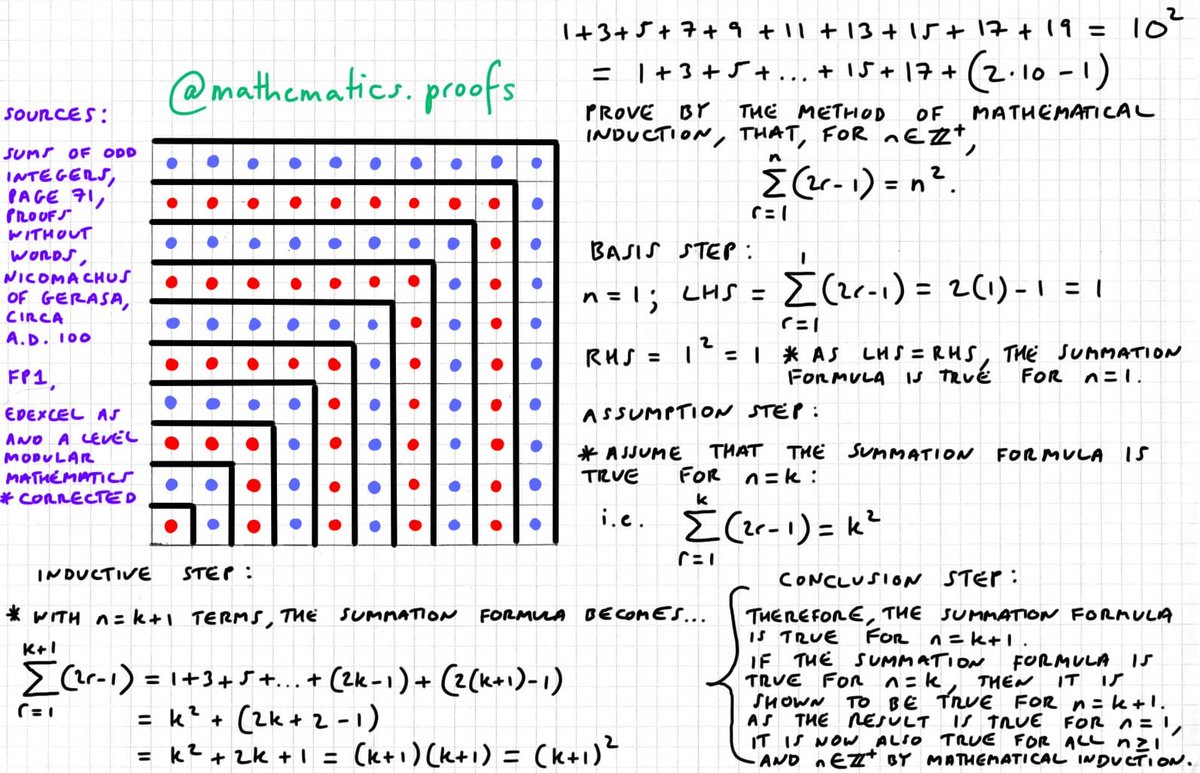 1+3+5+7+9+11+13+15+17+19 = 10²
= 1+3+5+...+15+17+(2·10-1)
@mathematics.proofs
PROVE BY THE METHOD OF MATHEMATICAL
INDUCTION, THAT, FOR n∈ℤ⁺,
n
∑(2r-1) = n².
r=1
SOURCES:
SUMS OF ODD
INTEGERS,
PAGE 71,
PROOFS
WITHOUT
WORDS,
NICOMACHUS
OF GERASA,
CIRCA
A.D. 100
FP1,
EDEXCEL AS
AND A LEVEL
MODULAR
MATHEMATICS
* CORRECTED
BASIS STEP:
1
n=1; LHS = ∑(2r-1) = 2(1)-1 = 1
r=1
RHS = 1² = 1 * AS LHS=RHS, THE SUMMATION
FORMULA IS TRUE FOR n=1.
ASSUMPTION STEP:
* ASSUME THAT THE SUMMATION FORMULA IS
TRUE FOR n=k:
k
i.e. ∑(2r-1) = k²
r=1
INDUCTIVE STEP:
* WITH n=k+1 TERMS, THE SUMMATION FORMULA BECOMES...
k+1
∑(2r-1) = 1+3+5+...+(2k-1)+(2(k+1)-1)
r=1
= k² + (2k+2-1)
= k²+2k+1 = (k+1)(k+1) = (k+1)²
CONCLUSION STEP:
THEREFORE, THE SUMMATION FORMULA
IS TRUE FOR n=k+1.
IF THE SUMMATION FORMULA IS
TRUE FOR n=k, THEN IT IS
SHOWN TO BE TRUE FOR n=k+1.
AS THE RESULT IS TRUE FOR n=1,
IT IS NOW ALSO TRUE FOR ALL n≥1
AND n∈ℤ⁺ BY MATHEMATICAL INDUCTION.